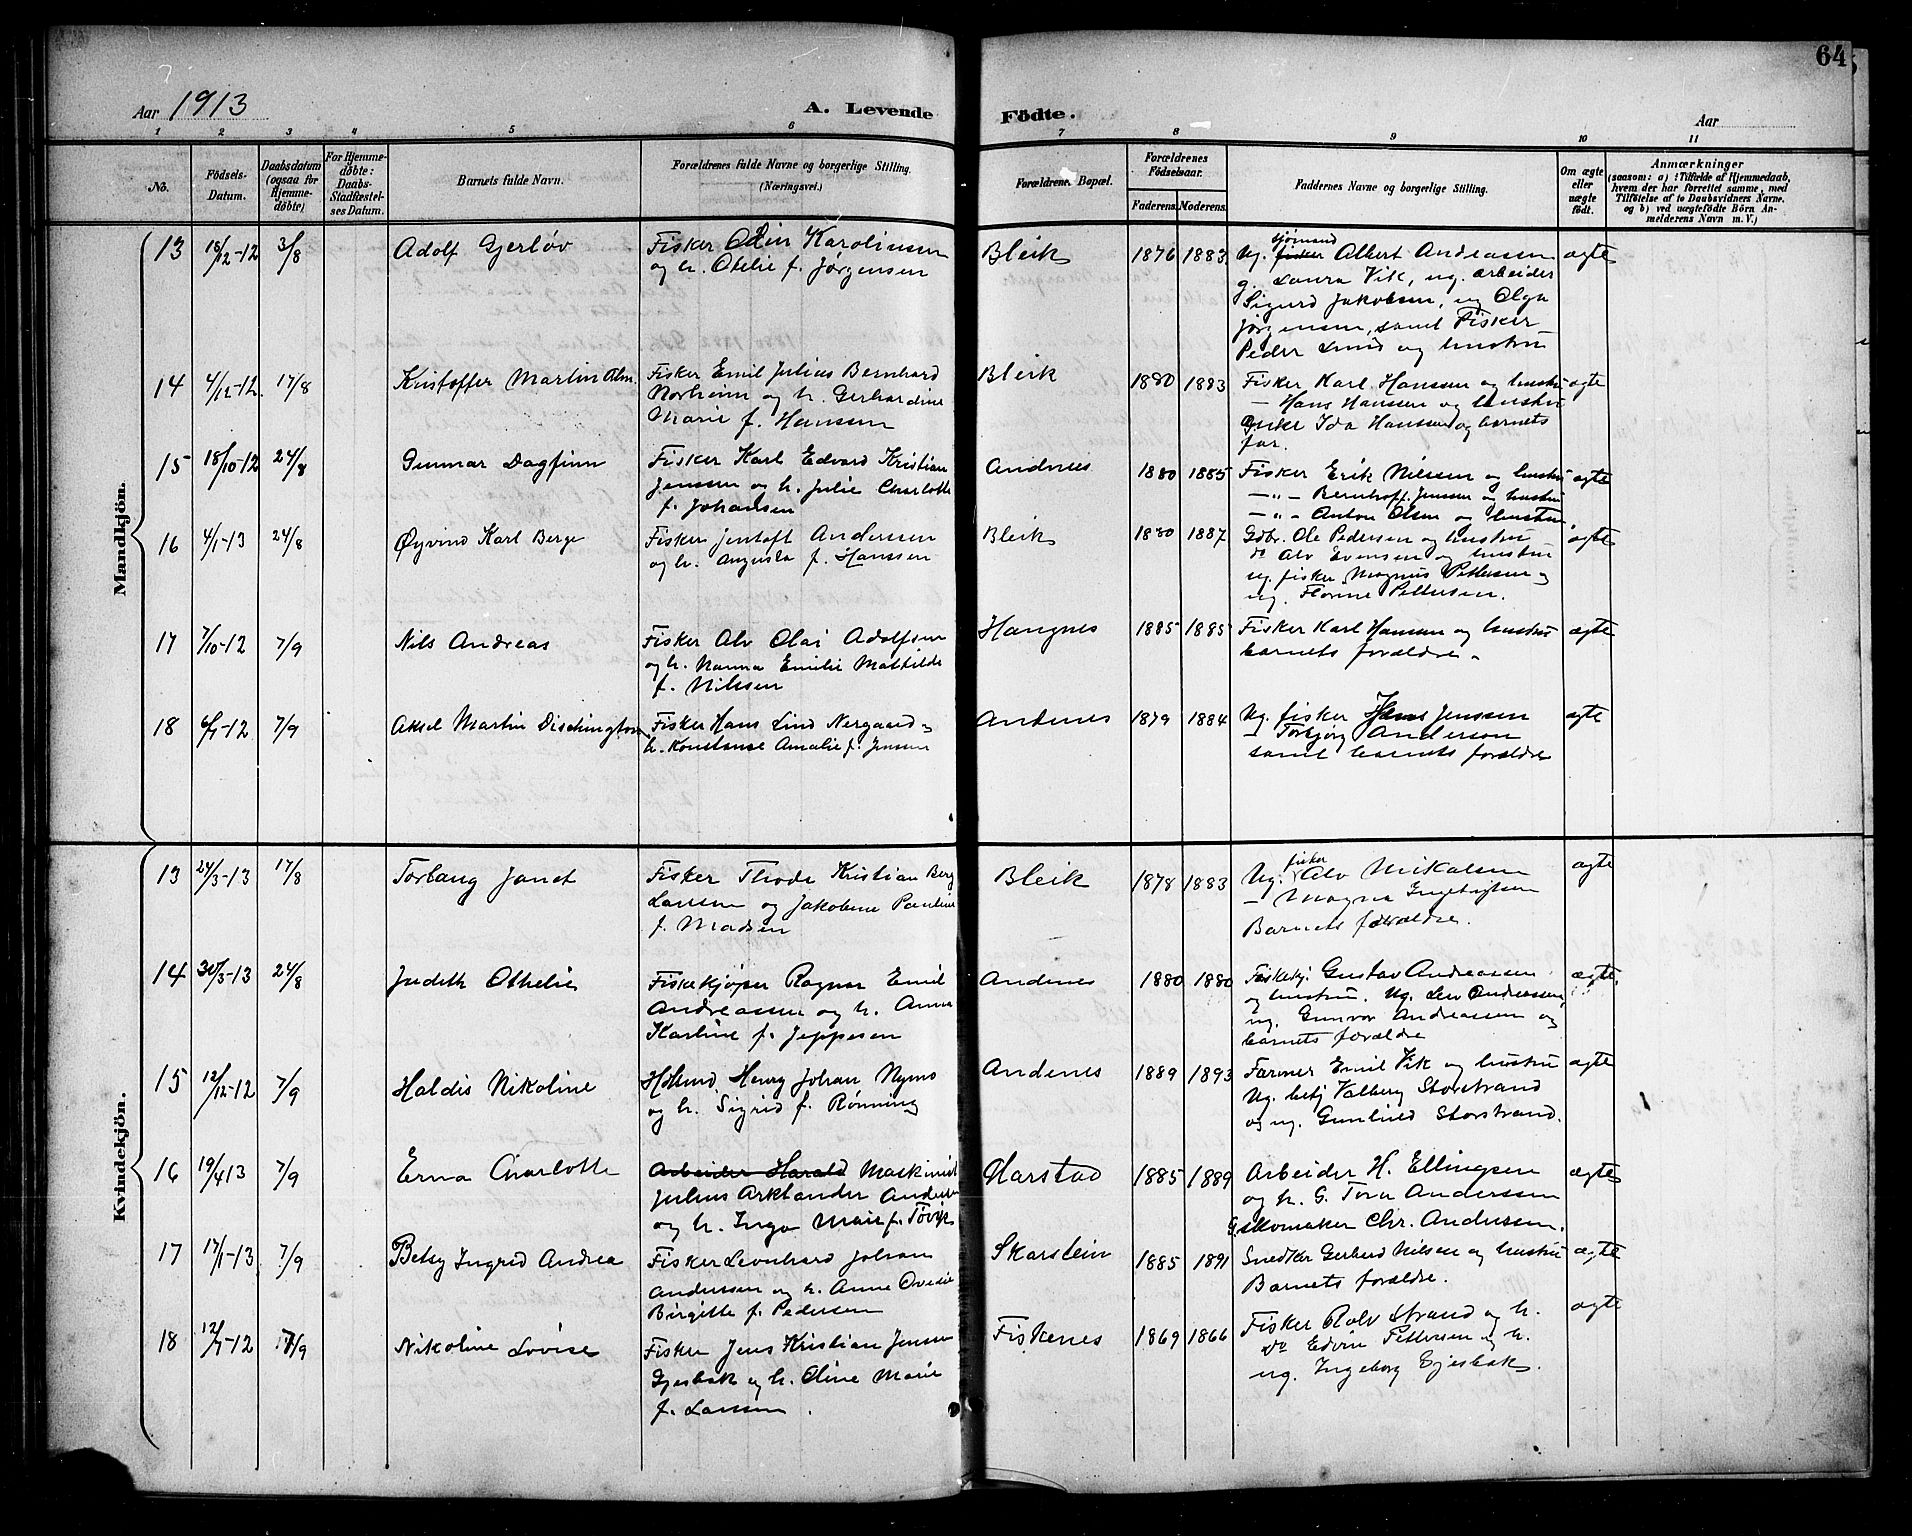 64
Aar 1913
A. Levende
Födte.
Aar
1 2 3 4 5 6 7 8 9 10 11
No.
Födsels-
Datum.
Daabsdatum
(ogsaa for
Hjemme-
döbte)
For Hjemme-
döbte:
Daabs-
Stadfæstel-
ses Datum.
Barnets fulde Navn.
Forældrenes fulde Navne og borgerlige Stilling.
(Næringsvei.)
Forældrene. Bopæl.
Forældrenes
Födselsaar.
Faderens. Moderens.
Faddernes Navne og borgerlige Stilling.
Om ægte
eller
uægte
födt.
Anmærkninger
(saasom: a) i Tilfælde af Hjemmedaab,
hvem der har forrettet samme, med
Tilföielse af to Daabsvidners Navne.
og b) ved uægtefödte Börn An-
melderens Navn m. V.)
Mandkjön.
13 18/12-12 3/8 Adolf Gerløv
Fisker Odin Karolinsen
og h. Otelie f. Jørgensen
Bleik 1876 1883
sjömand
Ug. fisker Albert Andreassen
g. Laura Vik, ug. arbeider
Sigurd Jakobsen, ug Olga
Jørgensen, samt Fisker
Peder Lund og hustru
ægte
14 4/12-12 17/8 Kristoffer Martin Alm.
Fisker Emil Julius Bernhard
Norheim og h. Gerhardine
Marie f. Hanssen
Bleik 1880 1883
Fisker Karl Hanssen og hustru
— Hans Hanssen og hustru
Ida Hanssen og barnets
far.
ægte
15 18/10-12 24/8 Gunnar Dagfinn
Fisker Karl Edvard Kristian
Jenssen og h. Julie Charlotte
f. Johansen
Andnes 1880 1885
Fisker Erik Nilssen og hustru
—„— Bernhoff Jenssen og hustru
—„— Anton Olsen og hustru
ægte
16 4/1-13 24/8 Øyvind Karl Berge
Fisker Jentoft Andersen
og h. Augusta f. Hanssen
Bleik 1880 1887
Gdbr. Ole Pedersen og hustru
do Alv Evensen og hustru
ug. fisker Magnus Pettersen og
ug. Florine Pettersen.
ægte
17 7/10-12 7/9 Nils Andreas
Fisker Alv Olai Adolfsen
og h. Nanna Emilie Mathilde
f. Nilssen
Haugnes 1885 1885
Fisker Karl Hansen og hustru
barnets forældre.
ægte
18 6/7-12 7/9 Aksel Martin Dischington
Fisker Hans Lind Nergaard og
h. Konstanse Amalie f. Jensen
Andenes 1879 1884
Ug. fisker Hans Jenssen
— Torbjørg Anderson
samt barnets forældre
ægte
Kvindekjön.
13 24/3-13 17/8 Torlaug Janet
Fisker Thode Kristian Berg
Larsen og Jakobine Pauline
f. Madsen
Bleik 1878 1883
fisker
Ug. Alv Mikalsen
— Magna Ingebrigtsen
Barnets forældre.
ægte
14 30/3-13 24/8 Judith Othelie
Fiskekjøper Ragnar Emil
Andreassen og h. Anna
Karline f. Jeppesen
Andenes 1880 1880
Fiskekj. Gustav Andreassen
og hustru. Ug. Leo Andreassen,
ug. Gunvor Andreassen og
barnets forældre
ægte.
15 12/12-12 7/9 Haldis Nikoline
Henry Johan Nymo
og h. Sigrid f. Rønning
Andenes 1889 1893
Farmer Emil Vik og hustru
Ug. betj Valberg Storstrand
og ug. Gunhild Storstrand.
ægte
16 19/4 13 7/9 Erna Charlotte
Arbeider Harald Maskinist
Julius Arktander Andersen
og h. Inga Marie f. Tøvik
Harstad 1885 1889
Arbeider H. Ellingsen
og h. G. Tora Anderssen
G. skomaker Chr. Andersen.
ægte
17 17/1-13 7/9 Betsy Ingrid Andrea
Fisker Leonhard Johan
Anderssen og h. Anne Ovedie
Birgitte f. Pedersen
Skarstein 1885 1891
Snedker Gerhard Nilsen og hustru
Barnets forældre.
ægte
18 12/7-12 17/9 Nikoline Lovise
Fisker Jens Kristian Jensen
Gjesbak og h. Oline Marie
f. Larssen.
Fiskenes 1869 1866
Fisker Rolv Strand og h.
do Edvin Pettersen og h.
ug. Ingeborg Gjesbak.
ægte